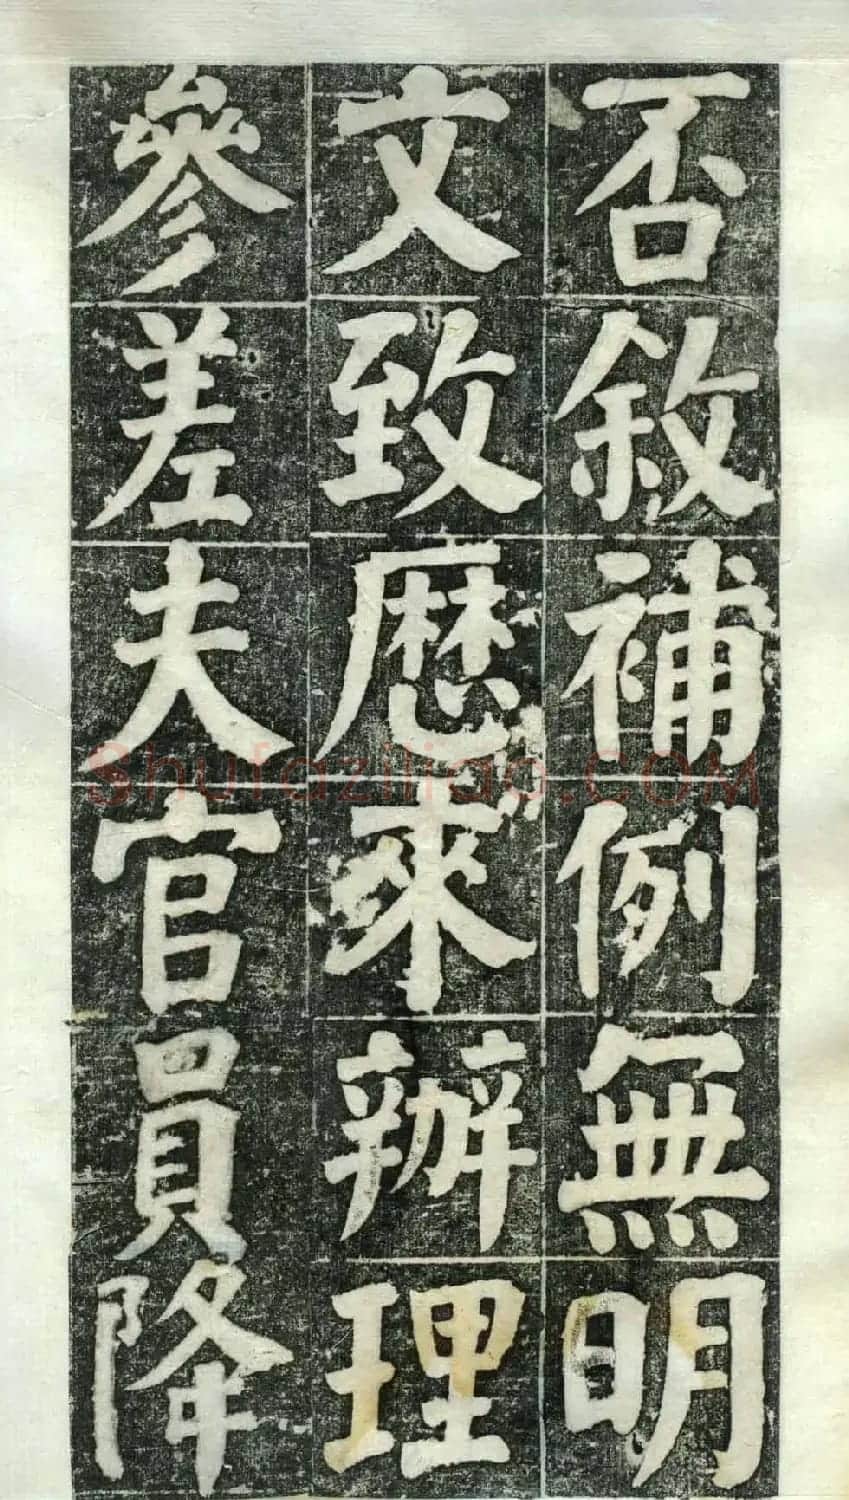 否敘補例無明
文致歷來辦理
參差夫官員降
Shufaziliao.COM